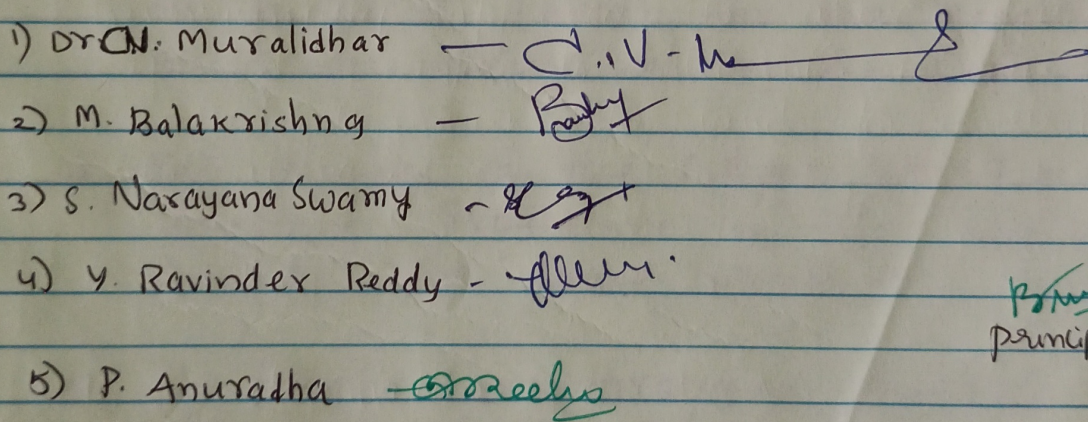 1) Dr CN. Muralidhar —
2) M. Balakrishna —
3) S. Narayana Swamy -
4) Y. Ravinder Reddy -
princi
5) P. Anuradha -